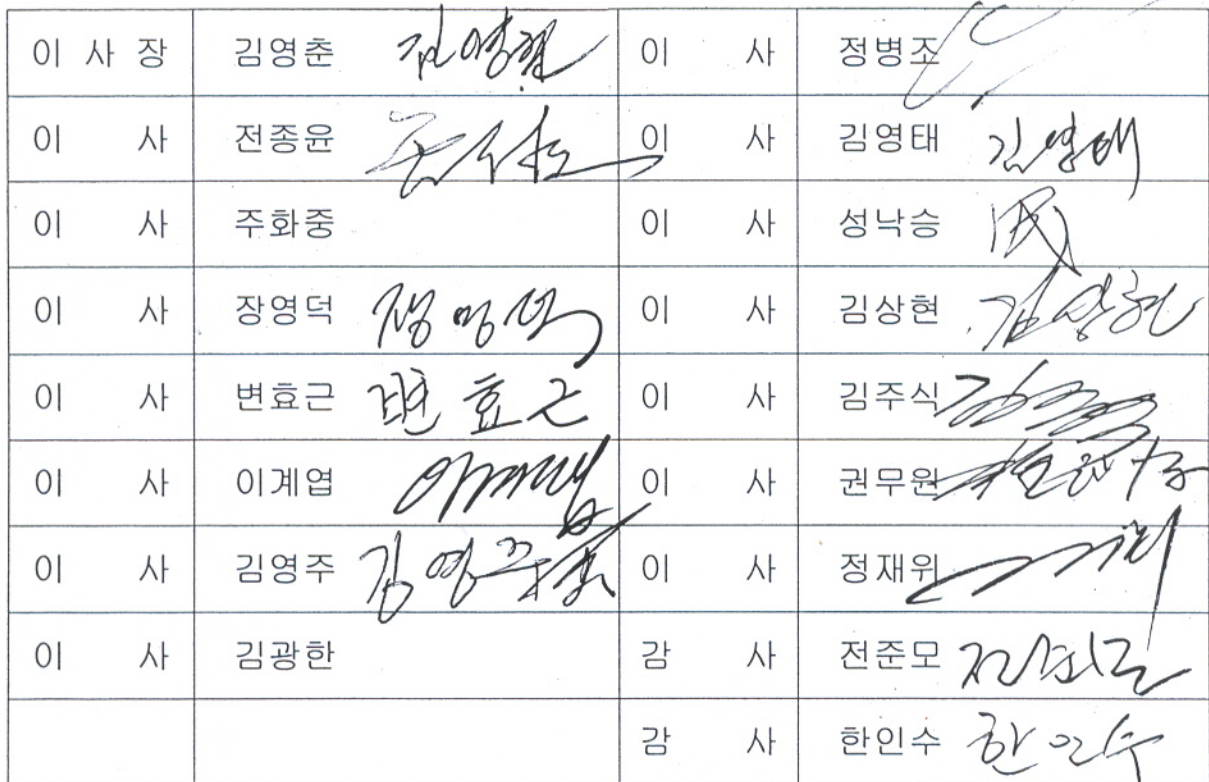 이 사 장 김영춘 이 사 정병조
이 사 전종윤 이 사 김영태 김영태
이 사 주화중 이 사 성낙승
이 사 장영덕 장영덕 이 사 김상현 김상현
이 사 변효근 변효근 이 사 김주식
이 사 이계엽 이계엽 이 사 권무원
이 사 김영주 김영주 이 사 정재위
이 사 김광한 감 사 전준모
감 사 한인수 한인수